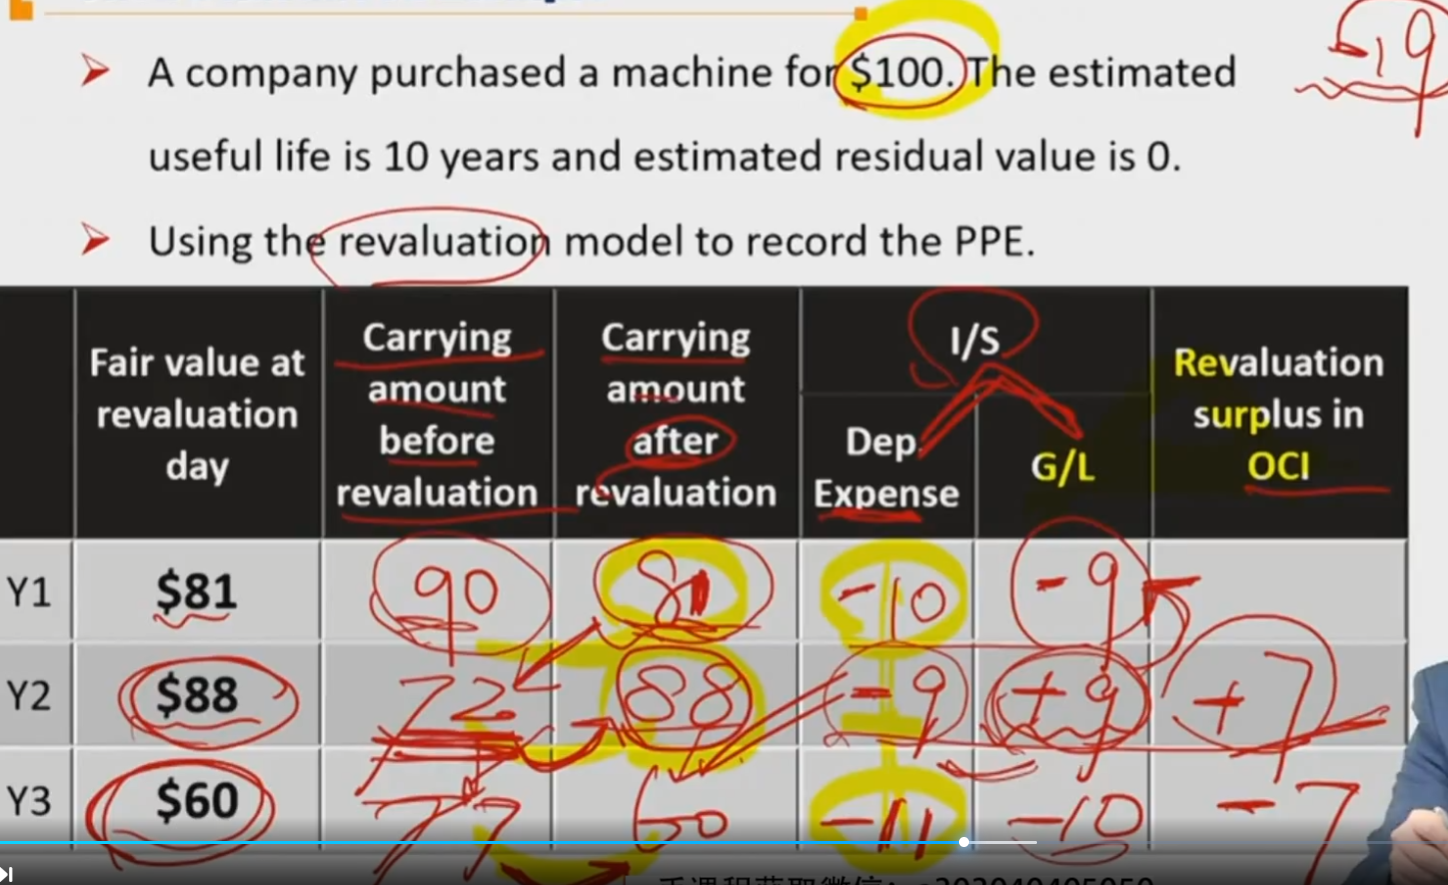 A company purchased a machine for $100. The estimated
useful life is 10 years and estimated residual value is 0.
Using the revaluation model to record the PPE.
-19
Fair value at revaluation day
Carrying amount before revaluation
Carrying amount after revaluation
I/S
Dep. Expense
G/L
Revaluation surplus in OCI
Y1 $81 90 81 -10 -9
Y2 $88 72 88 -9 +9 +7
Y3 $60 77 60 -11 -10 -7